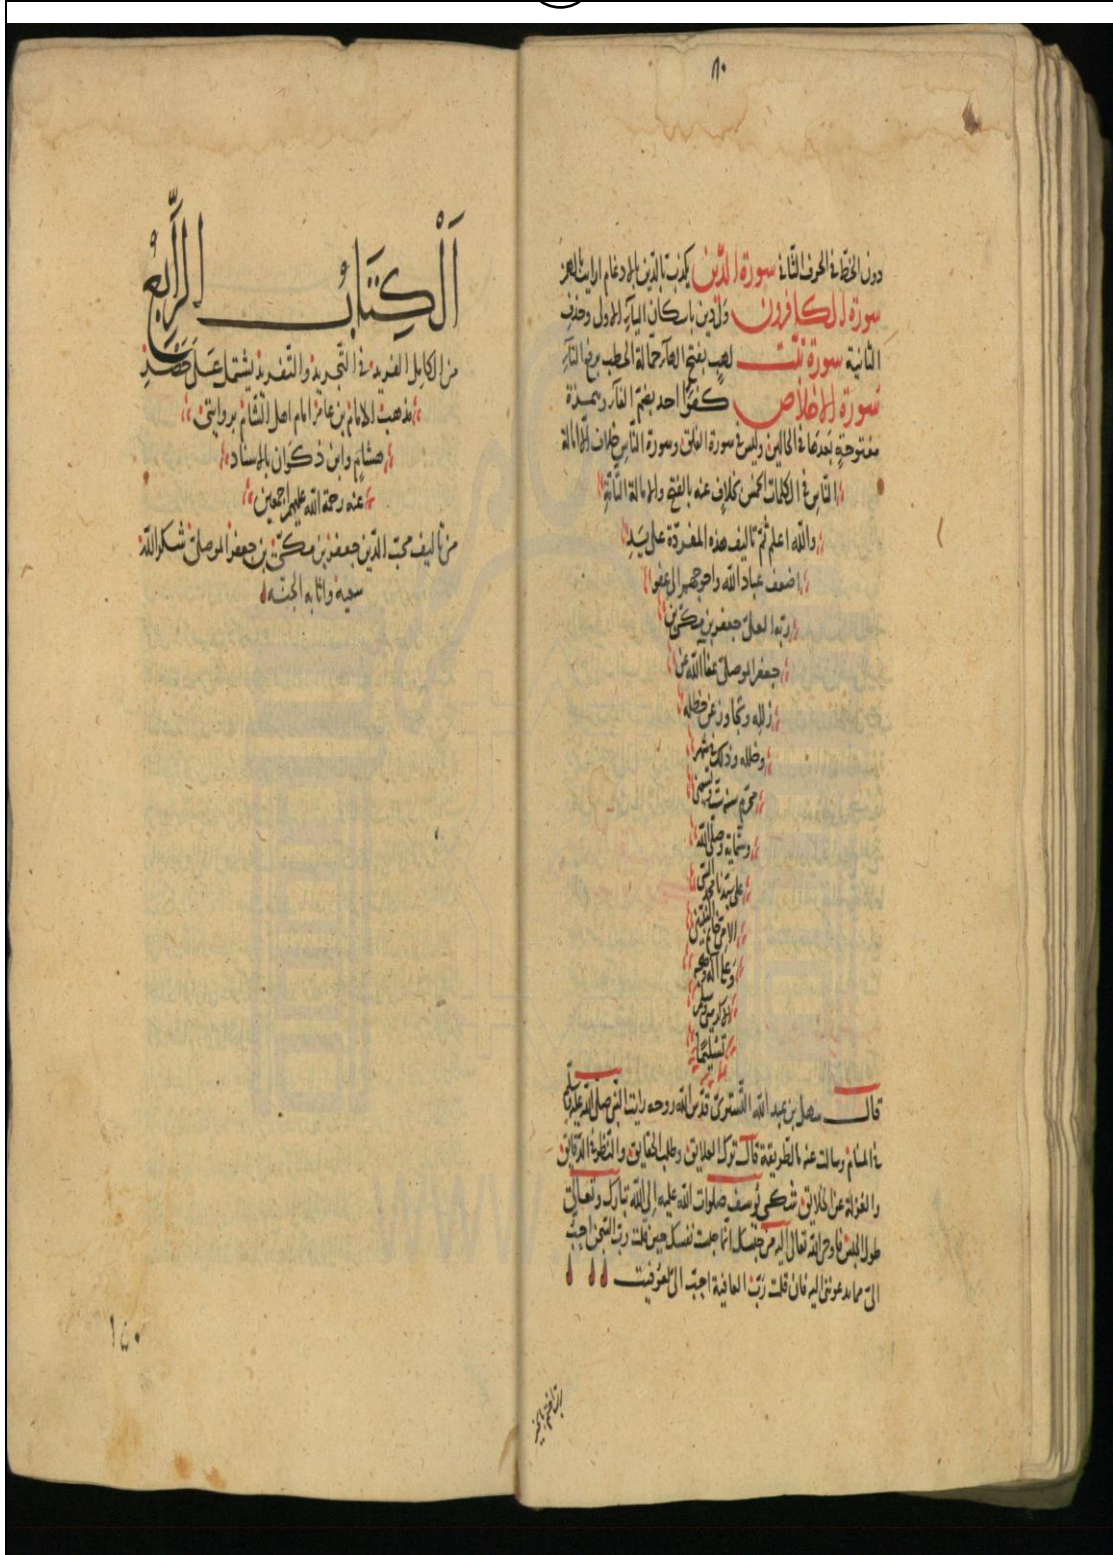 ٨٠
دون الخطّ في الحرف الثاني سورة الدّين يكذب بالدّين بالادغام ارايت
سورة الكافرون ولي دين باسكان الياء الاول وحذف
الثانية سورة تبّت لهب بفتح الهاء حمّالة الحطب برفع التاء
سورة الاخلاص كفؤا احد بضمّ الفاء وبهمزة
مفتوحةٍ بعدها في الحالين وليس في سورة الفلق وسورة النّاس خلاف الّا امالة
النّاس في الكلمات الخمس بخلاف عنه بالفتح والامالة التّامّة
والله اعلم تمّ تاليف هذه المفردة على يَدِ
اضعف عباد الله واحوجهم الى عفو
ربّه العليّ جعفر بن مكّي بن
جعفر الموصلي عفا الله عن
زلله وتجاوز عن خطله
وخلله وذلك في شهر
محرّم سنة
وستماية وصلّى الله
على سيّدنا محمّد النبيّ
الامّيّ خاتم النبيّين
وعلى آله وصحبه
الاكرمين وسلّم
تسليمًا
قال سهل بن عبد الله التّستري قدّس الله روحه رايت النّبي صلى الله عليه وسلّم
في المنام وسالت عنه ما الطّريقة قال ترك العلايق وطلب الحقايق والنّظر في الدّقايق
والعُزلة عن الخلايق شكى يُوسف صلوات الله عليه الى الله تبارك وتعالى
طول الحبس فاوحى الله تعالى اليه من حبسك انما حبست نفسك حين قلت ربّ السّجن احبّ
اليّ مما يدعونني اليه فان قلت ربّ العافية احبّ اليّ لعوفيت
اَلْكِتَابُ الرَّابِعُ
من الكامل الفريد في التّجريد والتّفريد يشتمل على
مذهب الامام بن عامر امام اهل الشّام بروايتي
هشام وابن ذكوان بالاسناد
عنه رحمة الله عليهم اجمعين
من تاليف محبّ الدّين جعفر بن مكّيّ بن جعفر الموصلي شكر الله
سعيه واثابه الجنه
١٥٠